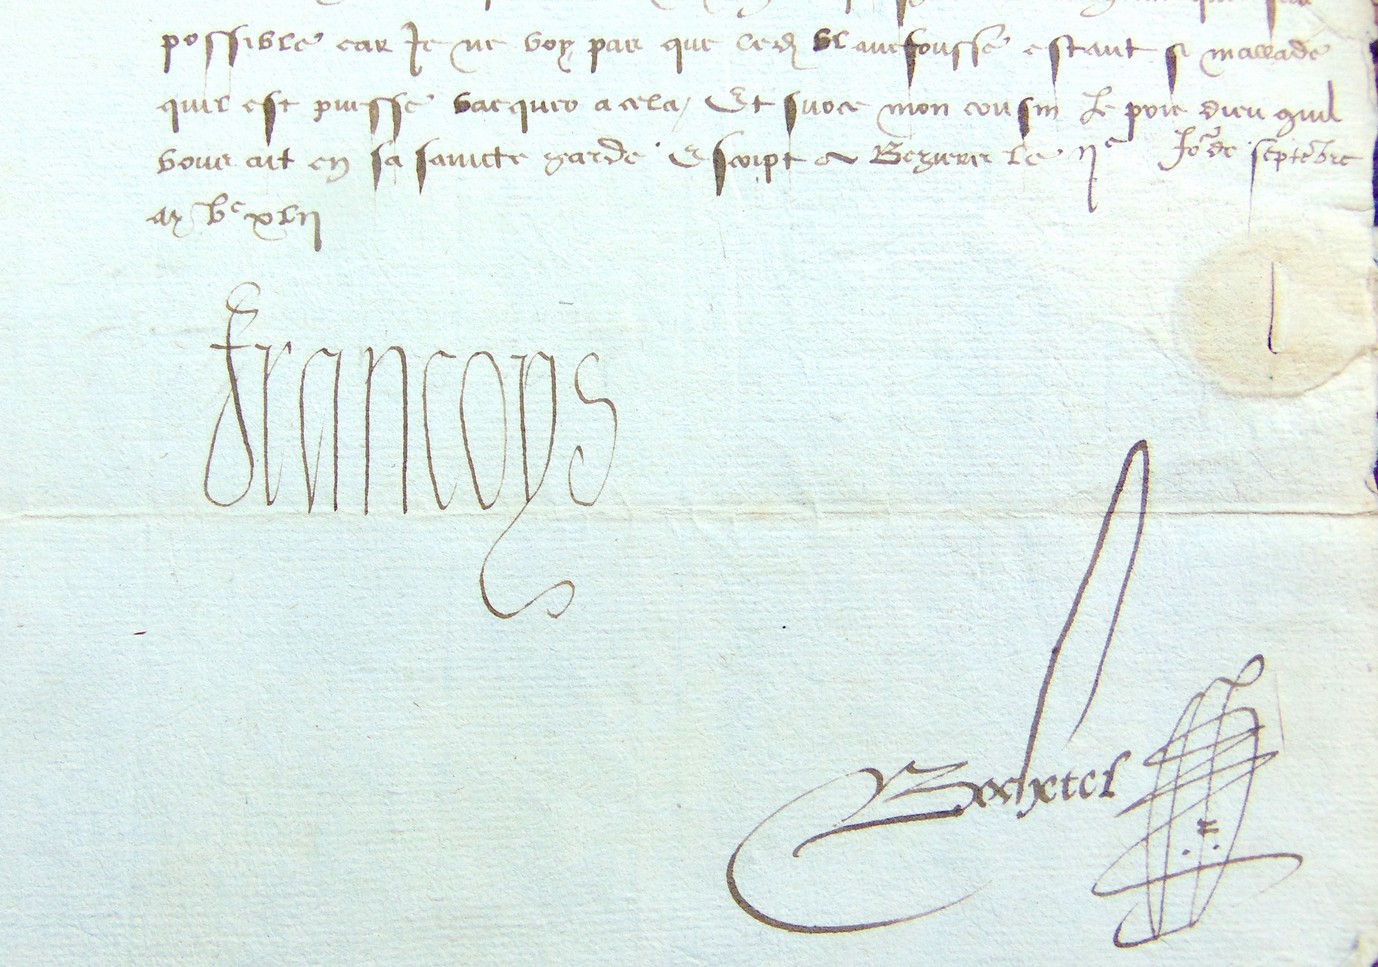 possible car Je ne voy pas que led blanefousse estant si mallade
quil est puisse vacquer a cela / Et sur ce mon cousin Je prie dieu quil
vous ait en sa saincte garde Escript a Beziers le ije Jor de septebre
mil vc xlij
Francoys
Bochetel